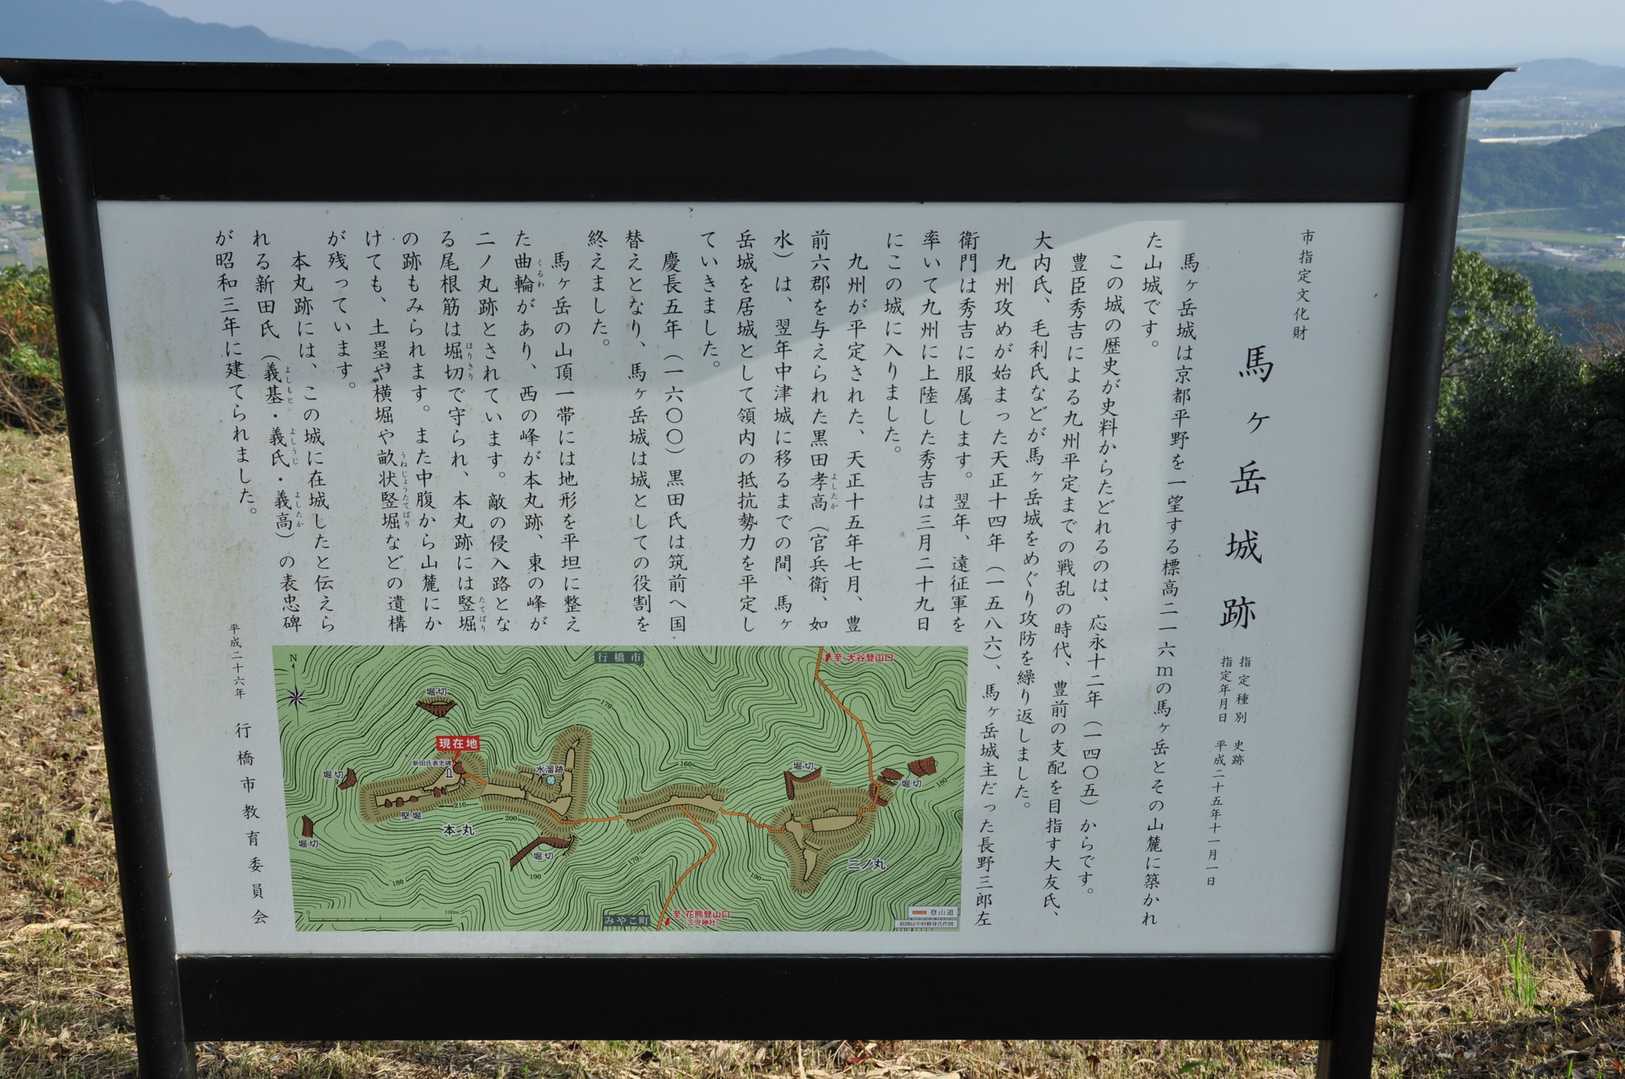 市指定文化財
馬ヶ岳城跡
指定種別　史跡
指定年月日　平成二十五年十一月一日
馬ヶ岳城は京都平野を一望する標高二一六ｍの馬ヶ岳とその山麓に築かれ
た山城です。
この城の歴史が史料からたどれるのは、応永十二年（一四〇五）からです。
豊臣秀吉による九州平定までの戦乱の時代、豊前の支配を目指す大友氏、
大内氏、毛利氏などが馬ヶ岳城をめぐり攻防を繰り返しました。
九州攻めが始まった天正十四年（一五八六）、馬ヶ岳城主だった長野三郎左
衛門は秀吉に服属します。翌年、遠征軍を
率いて九州に上陸した秀吉は三月二十九日
にこの城に入りました。
九州が平定された、天正十五年七月、豊
前六郡を与えられた黒田孝高（官兵衛、如
よしたか
水）は、翌年中津城に移るまでの間、馬ヶ
岳城を居城として領内の抵抗勢力を平定し
ていきました。
慶長五年（一六〇〇）黒田氏は筑前へ国
替えとなり、馬ヶ岳城は城としての役割を
終えました。
馬ヶ岳の山頂一帯には地形を平坦に整え
た曲輪があり、西の峰が本丸跡、東の峰が
くるわ
二ノ丸跡とされています。敵の侵入路とな
る尾根筋は堀切で守られ、本丸跡には竪堀
ほりきり
たてぼり
の跡もみられます。また中腹から山麓にか
けても、土塁や横堀や畝状竪堀などの遺構
うねじょうたてぼり
が残っています。
本丸跡には、この城に在城したと伝えら
れる新田氏（義基・義氏・義高）の表忠碑
よしもと
よしうじ
よしたか
が昭和三年に建てられました。
平成二十六年　行橋市教育委員会
N
行橋市
至 大谷登山口
堀切
現在地
新田氏表忠碑
堀切
水溜跡
堀切
堀切
竪堀
本丸
堀切
堀切
二ノ丸
170
160
180
216
200
190
170
190
180
100m
みやこ町
至 花熊登山口
登山道